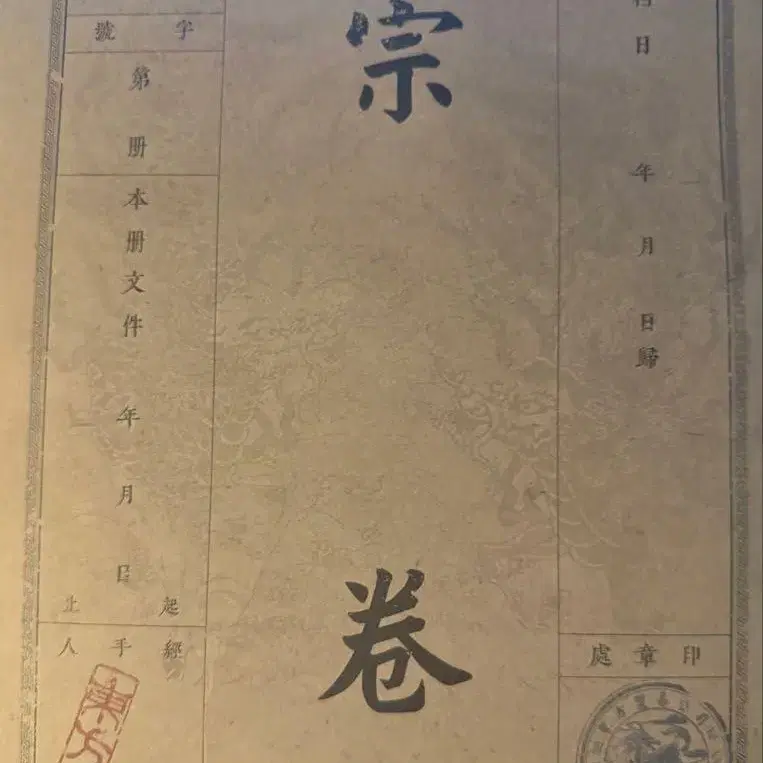 日
年月日歸
印章處
宗卷
字號
第 册
本册文件 年 月 日
起 止
經手人
東方